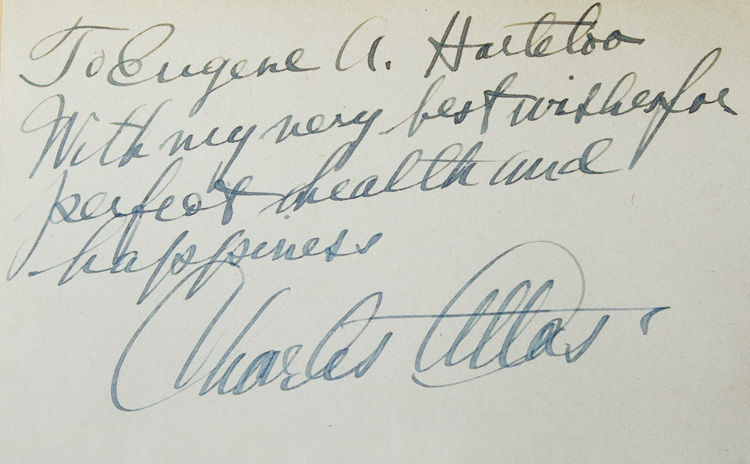 To Eugene A. Harteloo
With my very best wishes for
perfect health and
happiness
Charles Atlas